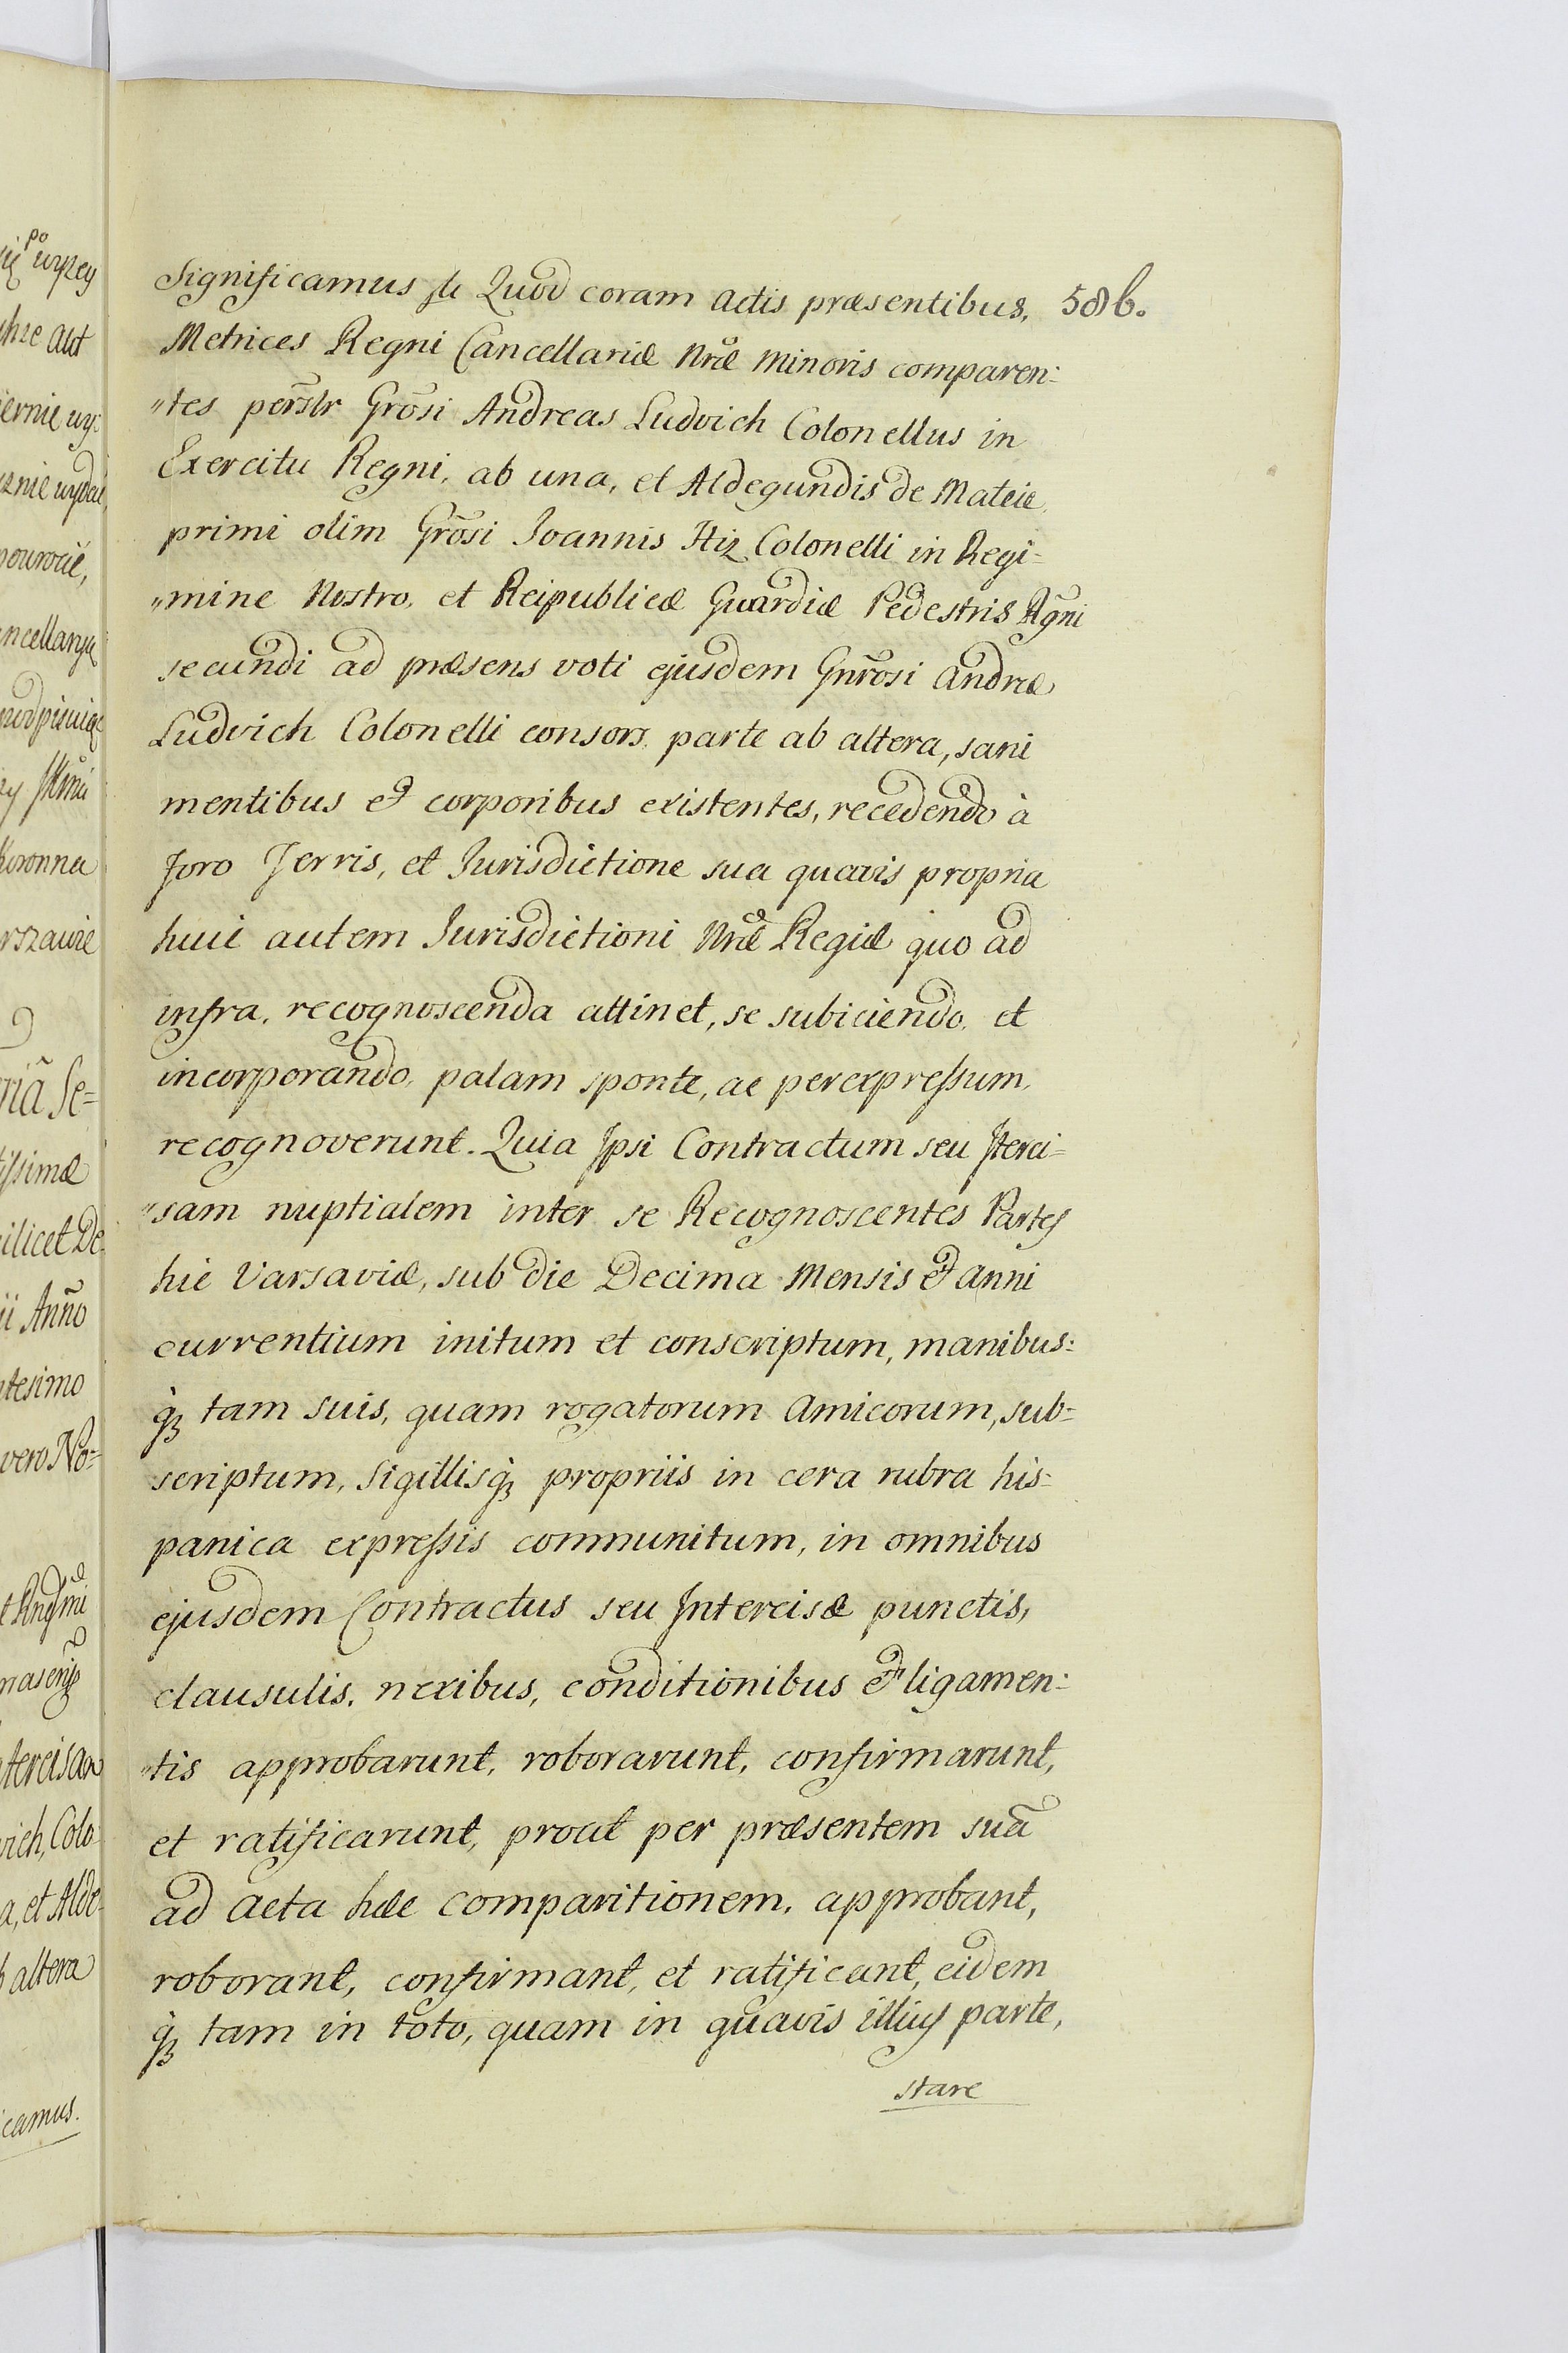 Significamus &c Quod coram Actis præsentibus, 586.
Metrices Regni Cancellariæ Nræ Minoris comparen:
"tes persłr Grosi Andreas Ludvich Colonellus in
Exercitu Regni, ab una, et Aldegundis de Mateie,
primi olim Grosi Joannis Hiz Colonelli in Regi=
"mine Nostro, et Reipublicæ Guardiæ Pedestris Rgni
secundi ad præsens voti ejusdem Gnrosi Andreæ
Ludvich Colonelli consors, parte ab altera, sani
mentibus et corporibus existentes, recedendo à
Foro Terris, et Jurisdictione sua quavis propria
huic autem Jurisdictioni Nræ Regiæ quo ad
infra, recognoscenda attinet, se subiciendo, et
incorporando, palam sponte, ac perexpressum,
recognoverunt. Quia Ipsi Contractum seu Iterci=
"sam nuptialem inter se Recognoscentes Partes
hic Varsaviæ, sub die Decima Mensis et Anni
currentium initum et conscriptum, manibus=
q̀ꝫ tam suis, quam rogatorum Amicorum, sub=
scriptum, Sigillisq̀ꝫ propriis in cera rubra his=
panica expressis communitum, in omnibus
ejusdem Contractus seu Intercisæ punctis,
clausulis, nexibus, conditionibus et ligamen:
"tis approbarunt, roborarunt, confirmarunt,
et ratificarunt, prout per præsentem suã
ad Acta hæc comparitionem, approbant,
roborant, confirmant, et ratificant, eidem
q̀ꝫ tam in toto, quam in quavis illius parte,
stare